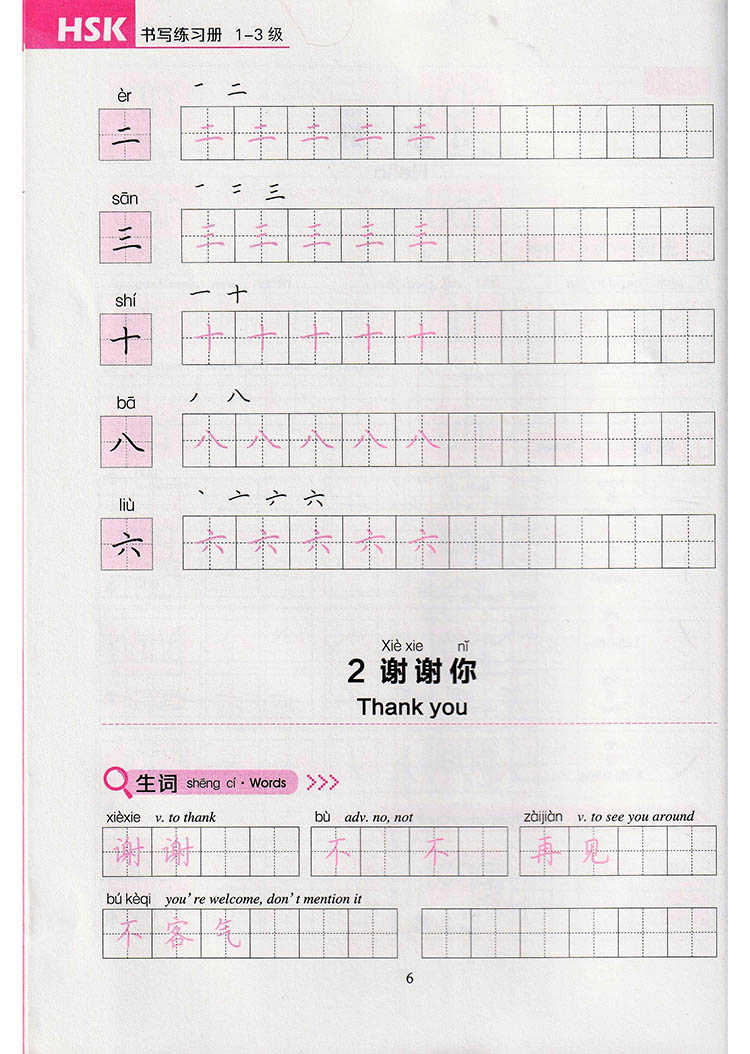 HSK 书写练习册 1-3 级
èr
一 二
二 二 二 二 二 二
sān
一 二 三
三 三 三 三 三 三
shí
一 十
十 十 十 十 十 十
bā
丿 八
八 八 八 八 八 八
liù
丶 亠 六 六
六 六 六 六 六 六
Xiè xie nǐ
2 谢谢你
Thank you
生词 shēng cí · Words
xièxie v. to thank
谢 谢
bù adv. no, not
不 不
zàijiàn v. to see you around
再 见
bú kèqi you're welcome, don't mention it
不 客 气
6